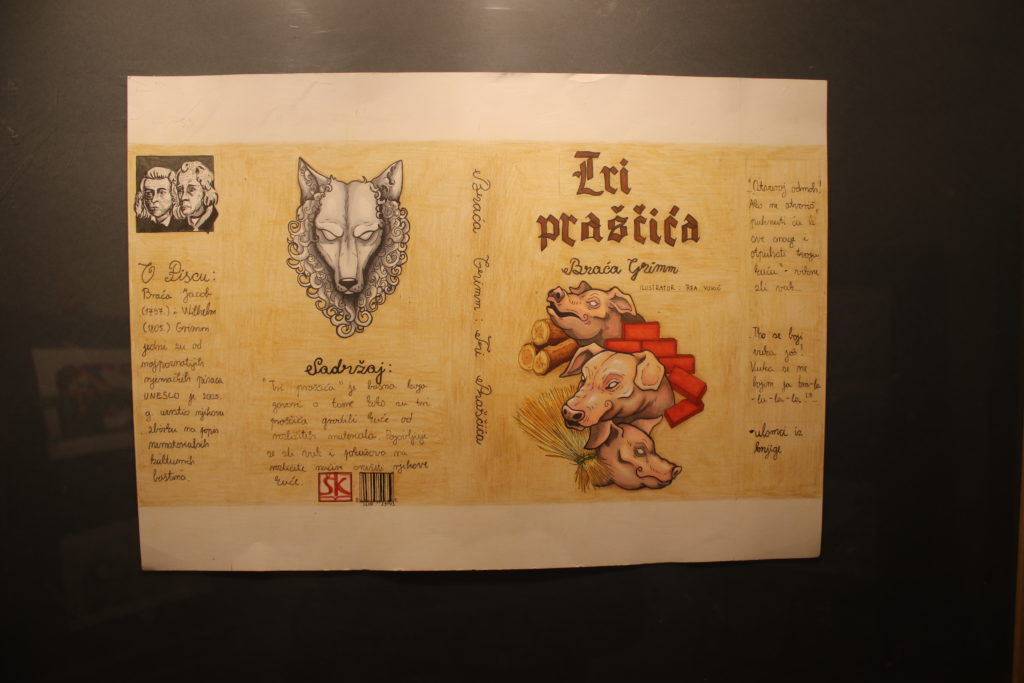 O Piscu:
Braća Jacob
(1797.) i Wilhelm
(1805.) Grimm
jedni su od
najpoznatijih
njemačkih pisaca
UNESCO je 2005.
g. uvrstio njihovu
zbirku na popis
nematerijalnih
kulturnih
baština.
Sadržaj:
"Tri praščića" je basna koja
govori o tome kako su tri
praščića gradili kuće od
različitih materijala. Pojavljuje
se zli vuk i pokušava na
različite načine uništiti njihove
kuće.
ŠK
Braća Grimm : Tri Praščića
Tri
praščića
Braća Grimm
ILUSTRATOR : REA VUKIĆ
"Otvaraj odmah!
Ako ne otvoriš,
puhnuti ću iz
sve snage i
otpuhati tvoju
kuću" - vikne
zli vuk...
"Tko se boji
vuka još!
Vuka se ne
bojim ja tra-la
-la-la-la!"...
•ulomci iz
knjige